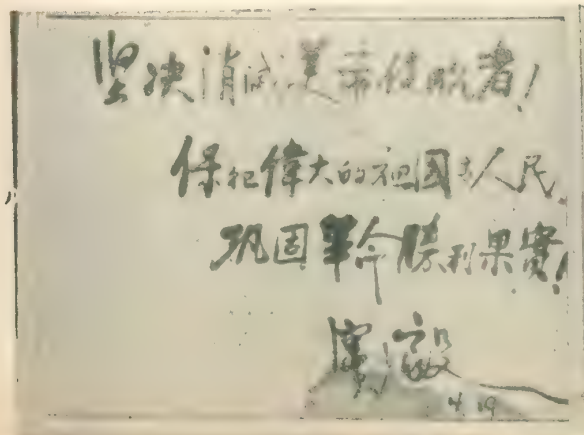 坚决消灭美帝侵略者!
保衞偉大的祖國与人民
巩固革命勝利果實!
毅
4.19